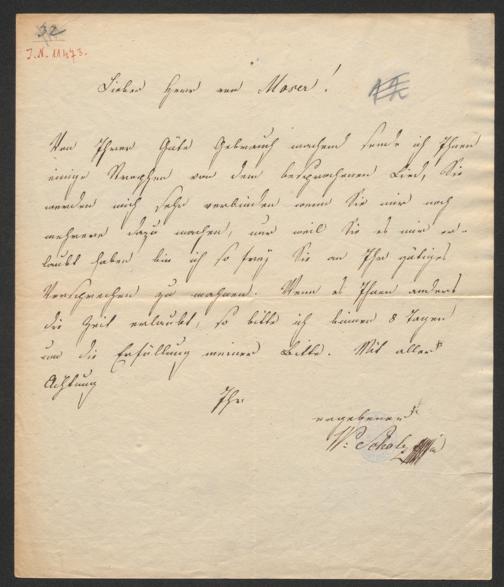 32
I.N. 11473.
Lieber Herr von Moser!
Von Ihrer Güte Gebrauch machend sende ich Ihnen
einige Strophen von dem besprochenen Lied, Sie
werden mich sehr verbinden wenn Sie mir noch
mehrere dazu machen, nur weil Sie es mir er-
laubt haben bin ich so frey Sie an Ihr gütiges
Versprechen zu mahnen. Wenn es Ihnen anders
die Zeit erlaubt, so bitte ich binnen 8 Tagen
um die Erfüllung meiner Bitte. Mit aller
Achtung
Ihr
ergebener
W: Scholz